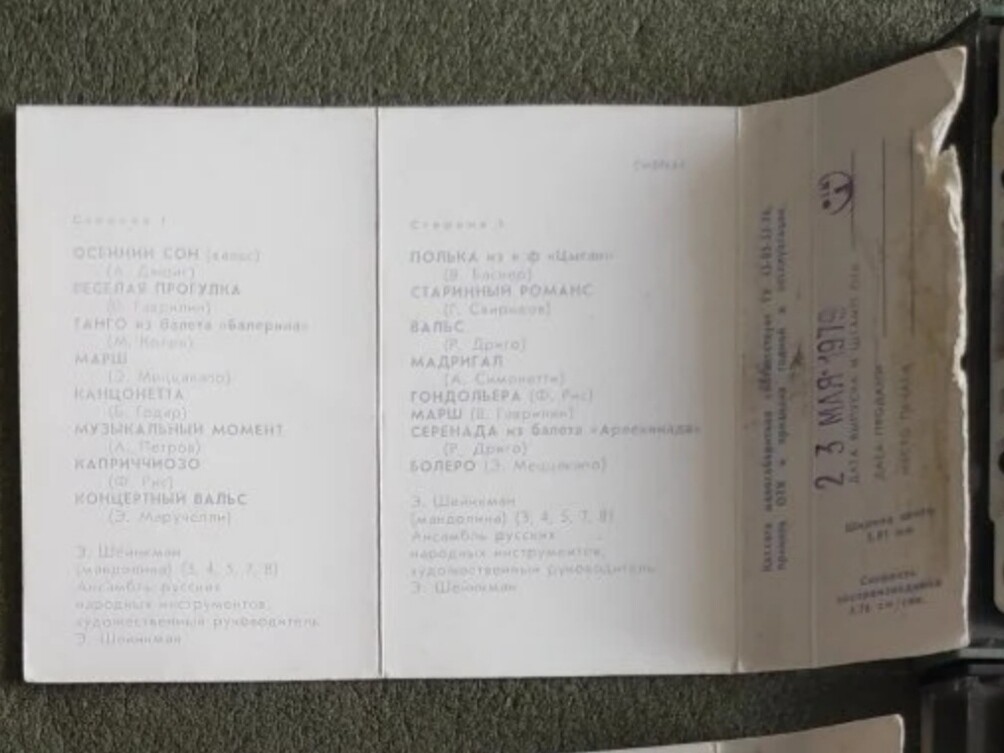 Сторона 1
ОСЕННИЙ СОН (вальс)
(А. Джойс)
ВЕСЕЛАЯ ПРОГУЛКА
(В. Гаврилин)
ТАНГО из балета «Балерина»
МАРШ
(Э. Меццакапо)
КАНЦОНЕТТА
(Б. Годар)
МУЗЫКАЛЬНЫЙ МОМЕНТ
(А. Петров)
КАПРИЧЧИОЗО
(Ф. Рис)
КОНЦЕРТНЫЙ ВАЛЬС
(Э. Маручелли)
Э. Шейнкман
(мандолина) (3, 4, 5, 7, 8)
Ансамбль русских
народных инструментов,
художественный руководитель
Э. Шейнкман
Сторона
ПОЛЬКА из к/ф «Цыган»
(В. Баснер)
СТАРИННЫЙ РОМАНС
(Г. Свиридов)
ВАЛЬС
(Р. Дриго)
МАДРИГАЛ
(А. Симонетти)
ГОНДОЛЬЕРА (Ф. Рис)
МАРШ (В. Гаврилин)
СЕРЕНАДА из балета «Арлекинада»
(Р. Дриго)
БОЛЕРО (Э. Меццакапо)
Э. Шейнкман
(мандолина) (3, 4, 5, 7, 8)
Ансамбль русских
народных инструментов,
художественный руководитель
Э. Шейнкман
Кассета малогабаритная соответствует ТУ
принята ОТК и признана годной к эксплуатации.
2 3 МАЯ 1979
ДАТА ВЫПУСКА И ШТАМП ОТК
ДАТА ПРОДАЖИ
МЕСТО ПЕЧАТИ
Ширина ленты
3,81 мм
Скорость
воспроизведения
4,76 см/сек.